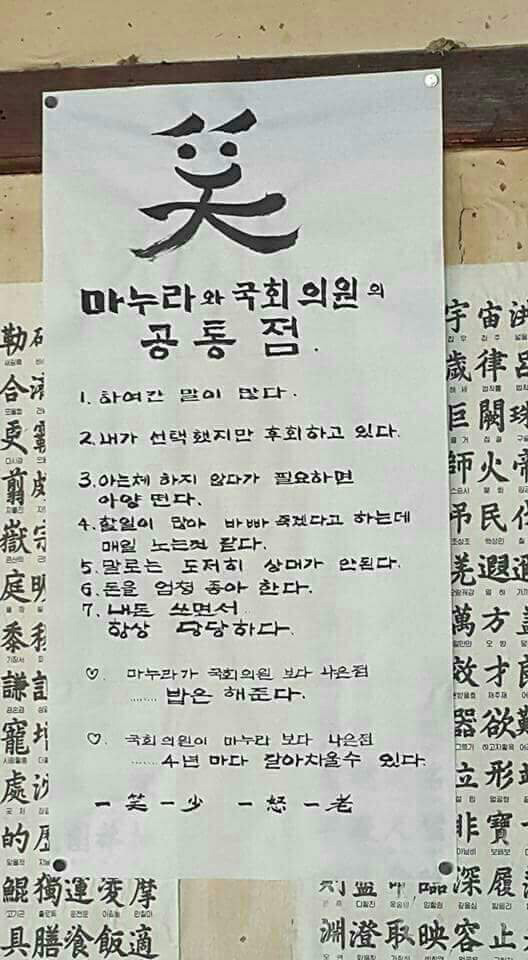 笑
마누라와 국회의원의
공통점.
1. 하여간 말이 많다.
2. 내가 선택했지만 후회하고 있다.
3. 아는체 하지 않다가 필요하면
아양 떤다.
4. 할일이 많아 바빠 죽겠다고 하는데
매일 노는것 같다.
5. 말로는 도저히 상대가 안된다.
6. 돈을 엄청 좋아 한다.
7. 내돈 쓰면서
항상 당당하다.
♡. 마누라가 국회의원 보다 나은점
........ 밥은 해준다.
♡. 국회의원이 마누라 보다 나은점
........ 4년 마다 갈아치울수 있다.
一笑一少 一怒一老
勒
合
更
翦
嶽宗
庭
黍
謙
寵增
處沈
的歷
鯤獨運凌摩
具膳飡飯適
宇宙洪
歲律呂
巨闕珠
師火帝
弔民伐
羌遐邇
萬方蓋
效才良
器欲難
立形端
非寶
深履
淵澄取映容止